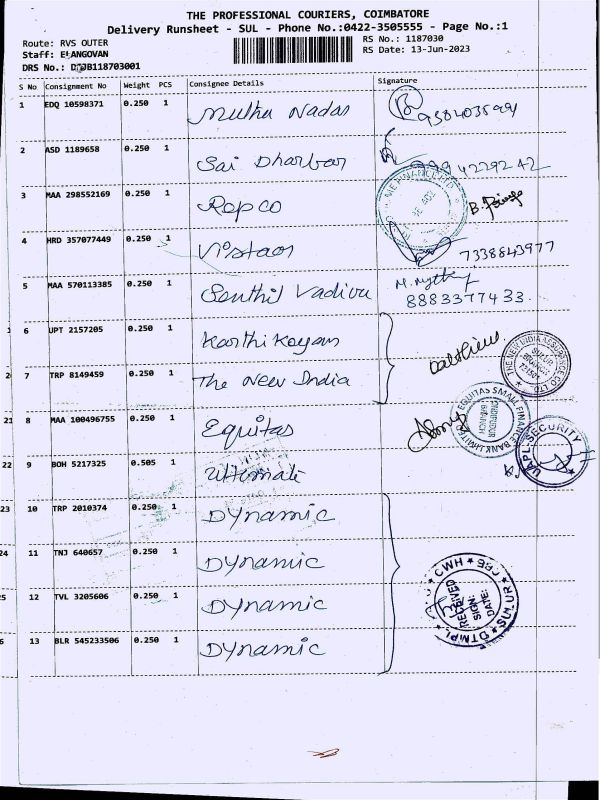 THE PROFESSIONAL COURIERS, COIMBATORE
Delivery Runsheet - SUL - Phone No.:0422-3505555 - Page No.:1
Route: RVS OUTER
RS No.: 1187030
Staff: ELANGOVAN
RS Date: 13-Jun-2023
DRS No.: 118703001
S No Consignment No Weight PCS Consignee Details Signature
1 EDQ 10598371 0.250 1 Muthu Nadar
2 ASD 1189658 0.250 1 Sai Dharbar
3 MAA 298552169 0.250 1 Repco
4 HRD 357077449 0.250 1 Vistaar 7338843977
5 MAA 570113385 0.250 1 Senthil Vadivu 8883377433
6 UPT 2157205 0.250 1 Karthikeyan
21 7 TRP 8149459 0.250 1 The New India
THE NEW INDIA ASSURANCE CO LTD
21 8 MAA 100496755 0.250 1 Equitas
EQUITAS SMALL FINANCE BANK LIMITED
BRANCH
22 9 BOH 5217325 0.505 1 Ultimate
UAPL-SECURITY
23 10 TRP 2010374 0.250 1 Dynamic
24 11 TNJ 640657 0.250 1 Dynamic
5 12 TVL 3205606 0.250 1 Dynamic
6 13 BLR 545233506 0.250 1 Dynamic
CWH
RECEIVED
SIGN:
DATE:
DTMPL